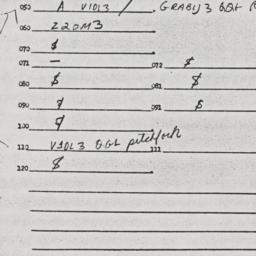 050 A V10L3 / GRABIJ3 GGL
060 220M3
070 $
071 — 072 $
080 $ 081 $
090 $ 091 $
100 $
110 V10L3 GGL pitchfork 111
120 $